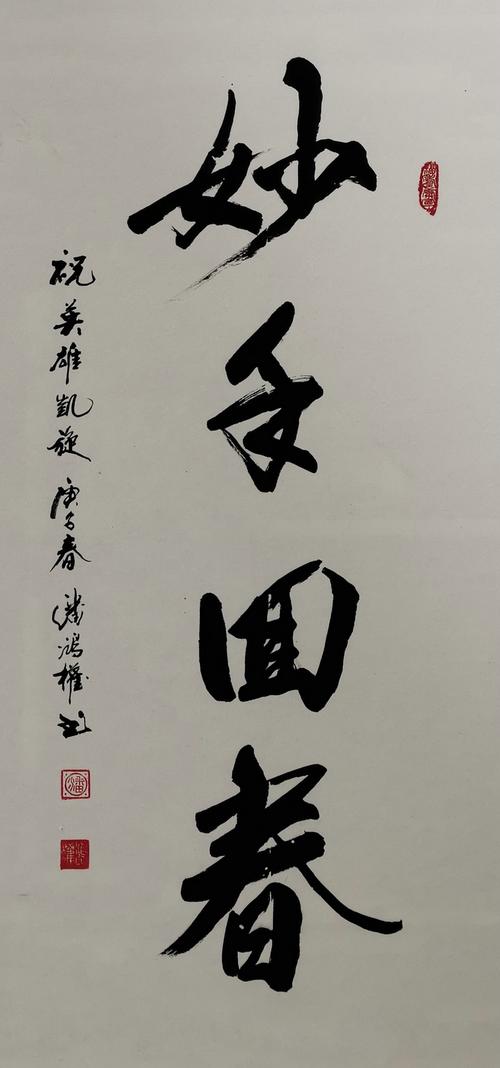 妙手回春
祝英雄凯旋 庚子春 潘鴻權